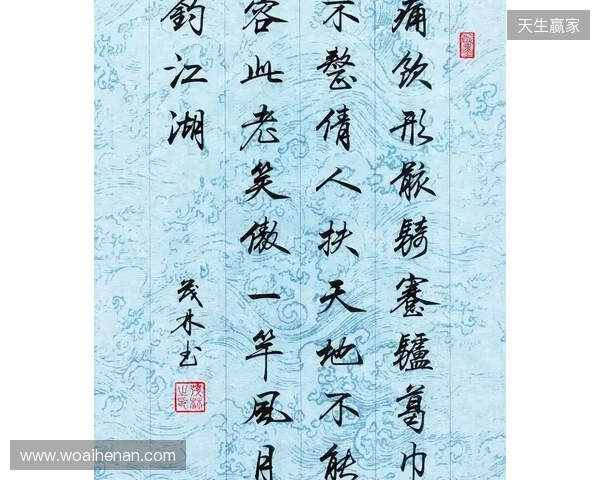 天生赢家
痛飲形骸騎蹇驢葛巾
不整倩人扶天地不能
容此老笑傲一竿風月
釣江湖
茂林书
www.woaihenan.com